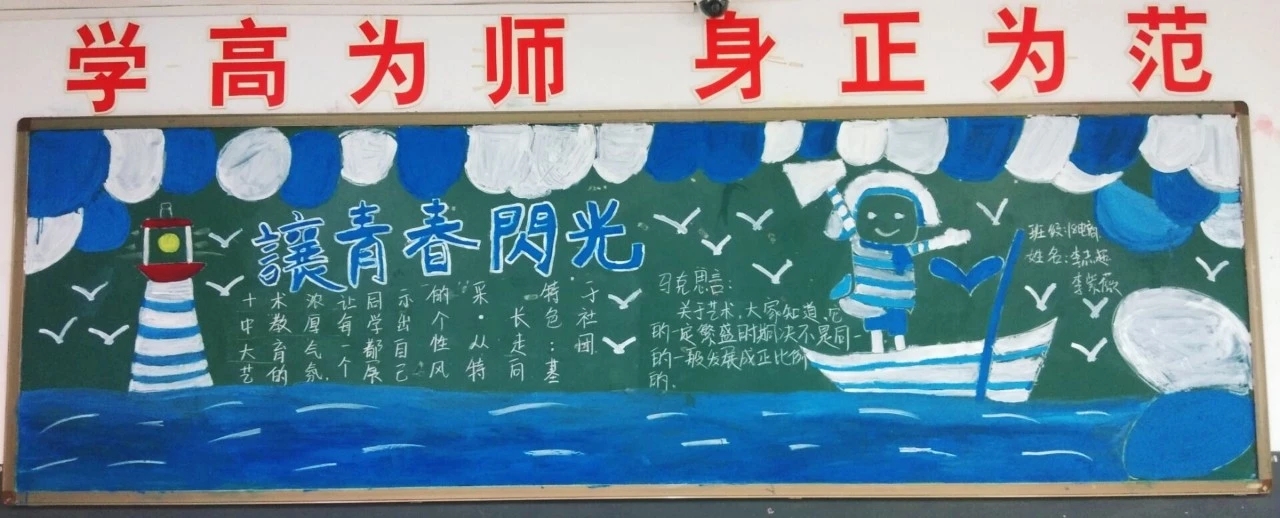 学高为师 身正为范
讓青春閃光
十中大艺
术教育的
浓厚气氛,
让每一个
同学都展
示出自己
的个性风
采。从特
长走向
特色:基
于社团
马克思言:
关于艺术,大家知道,它
的一定繁盛时期决不是同一
的一般发展成正比例
的.
班级:
姓名:李
李